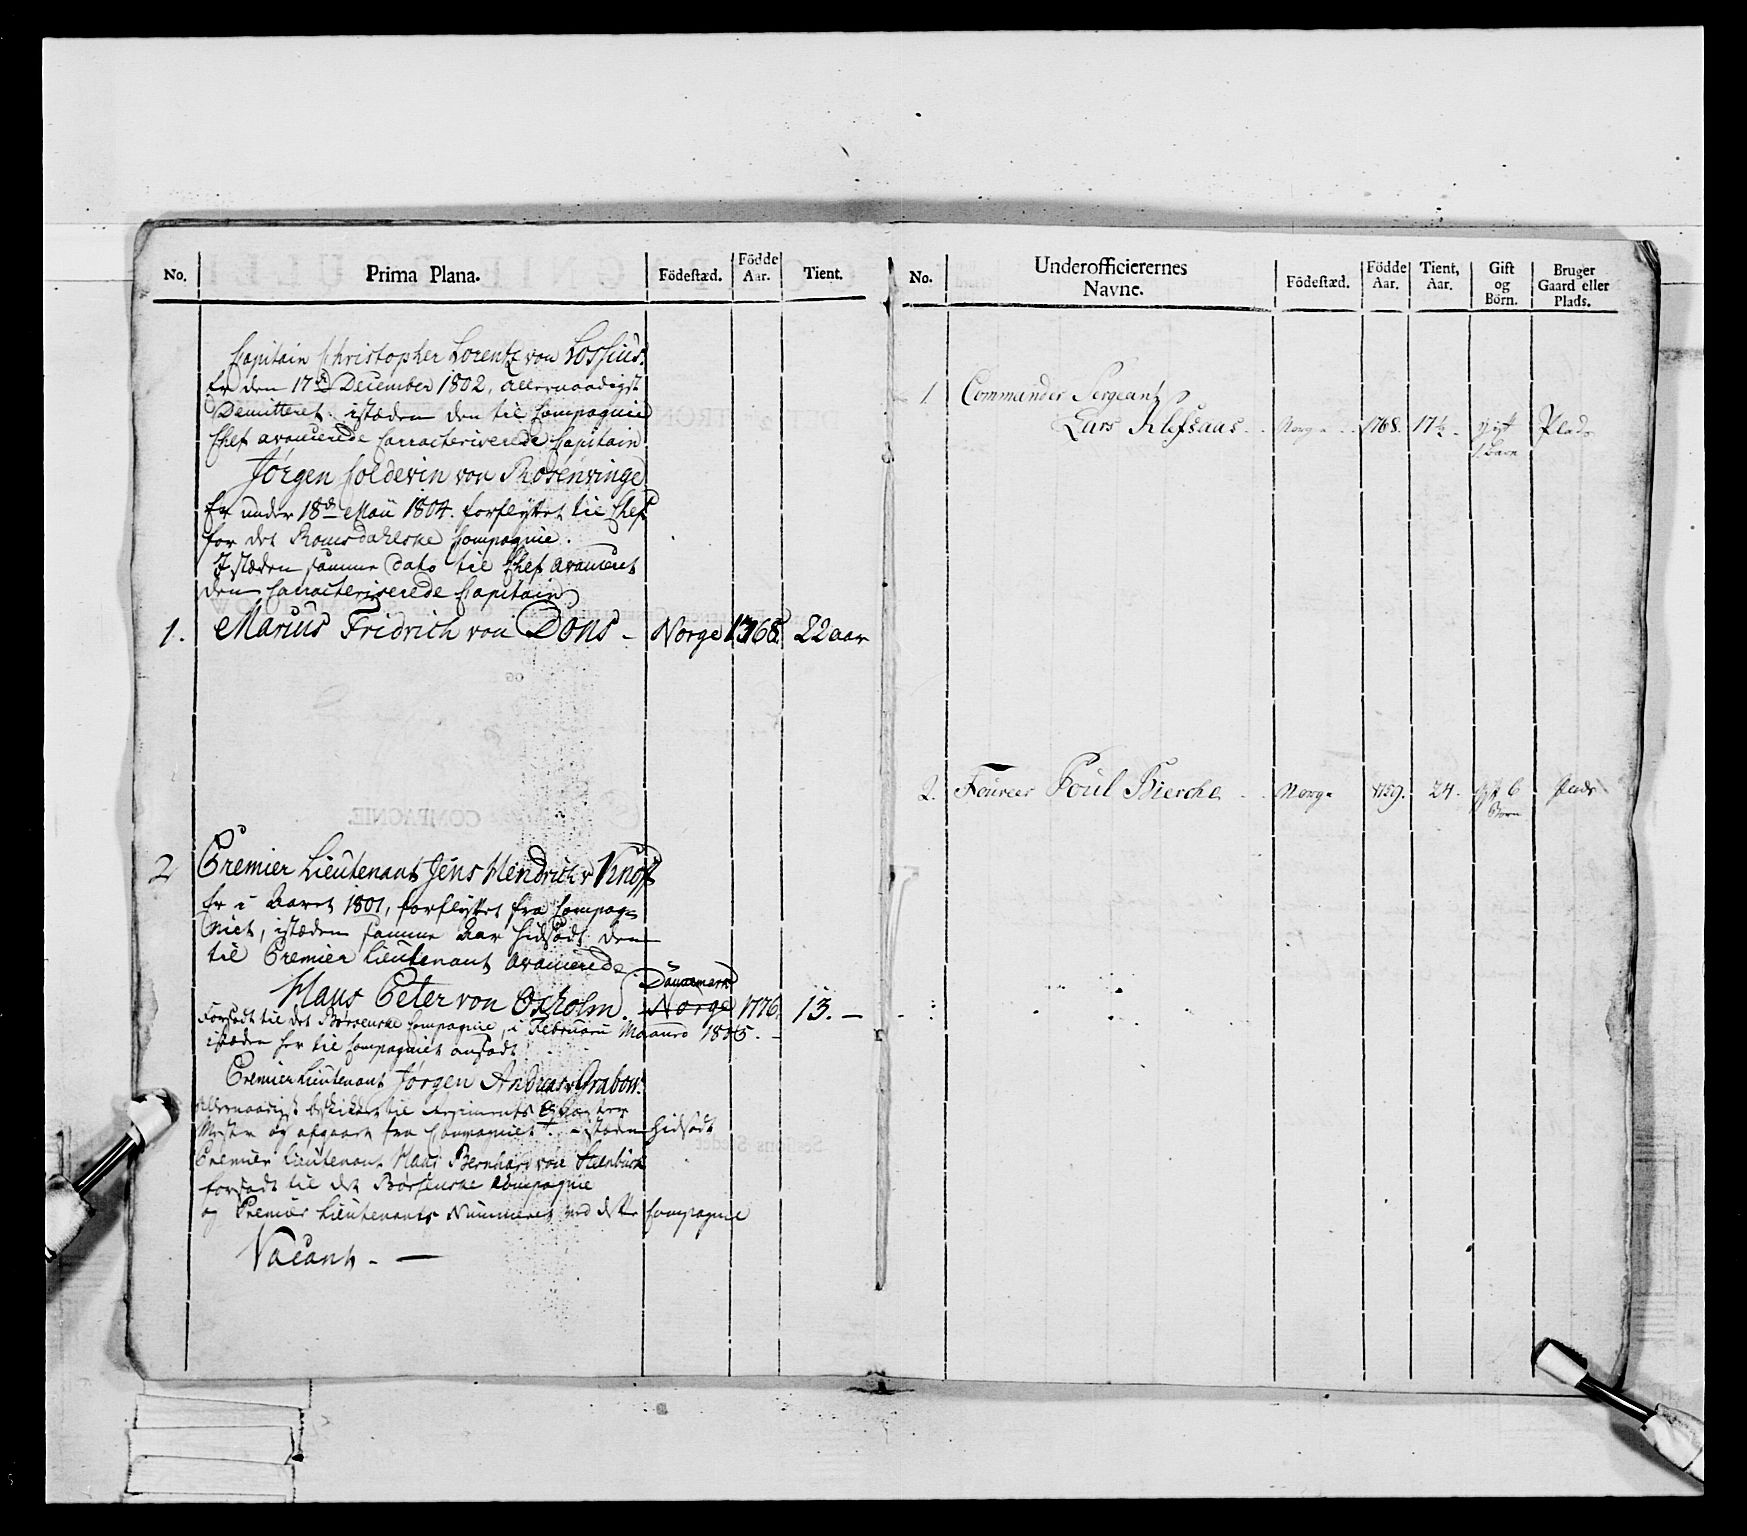 No.
Prima Plana.
Födestæd.
Födde Aar.
Tient.
Capitain Christopher Lorentz von Lossius.
Er den 17de December 1802, allernaadigst
Demitteret. istæden den til Compagnie
Chef avancerede Caracteriserede Capitain
Jörgen Coldevin von Rosenvinge
Er under 18de Maii 1804. forflyttet til Chef
for det Romsdahlske Compagnie.
I stæden samme dato til Chef avanceret
den Caracteriserede Capitain
1. Marius Fridrich von Döns - Norge 1768. 22 aar
2 Premier Lieutenant Jens Hendrich v Knoff
Er i Aaret 1801, forflyttet fra Compag-
niet, istæden samme Aar hidsadt den
til Premier Lieutenant avancerede
Dannemark
Hans Peter von Oxholm. Norge 1776. 13. -
Forsadt til det Børsenske Compagnie, i Februarii Maaned 1805. -
istæden her til Compagniet ansadt
Premier Lieutenant Jörgen Andreas v Grabow.
Allernaadigst beskikket til Regiments Qvarteer
Mester og afgaaet fra Compagniet. istæden hidsadt
Premier Lieutenant Hans Bernhard von Steenbuch
forsadt til det Børsenske Compagnie
og Premier Lieutenants Nummeret ved dette Compagnie
Vacant. -
No.
Underofficierernes
Navne.
Födestæd.
Födde Aar.
Tient, Aar.
Gift og Börn.
Bruger Gaard eller Plads.
1. Commander Sergeant
Lars Klefsaas. . Norge . 1768. 17½. gift Plads
1 Barn
2. Foureer Poul Bierche . . Norge 1759. 24. gift 6 Plads
Börn